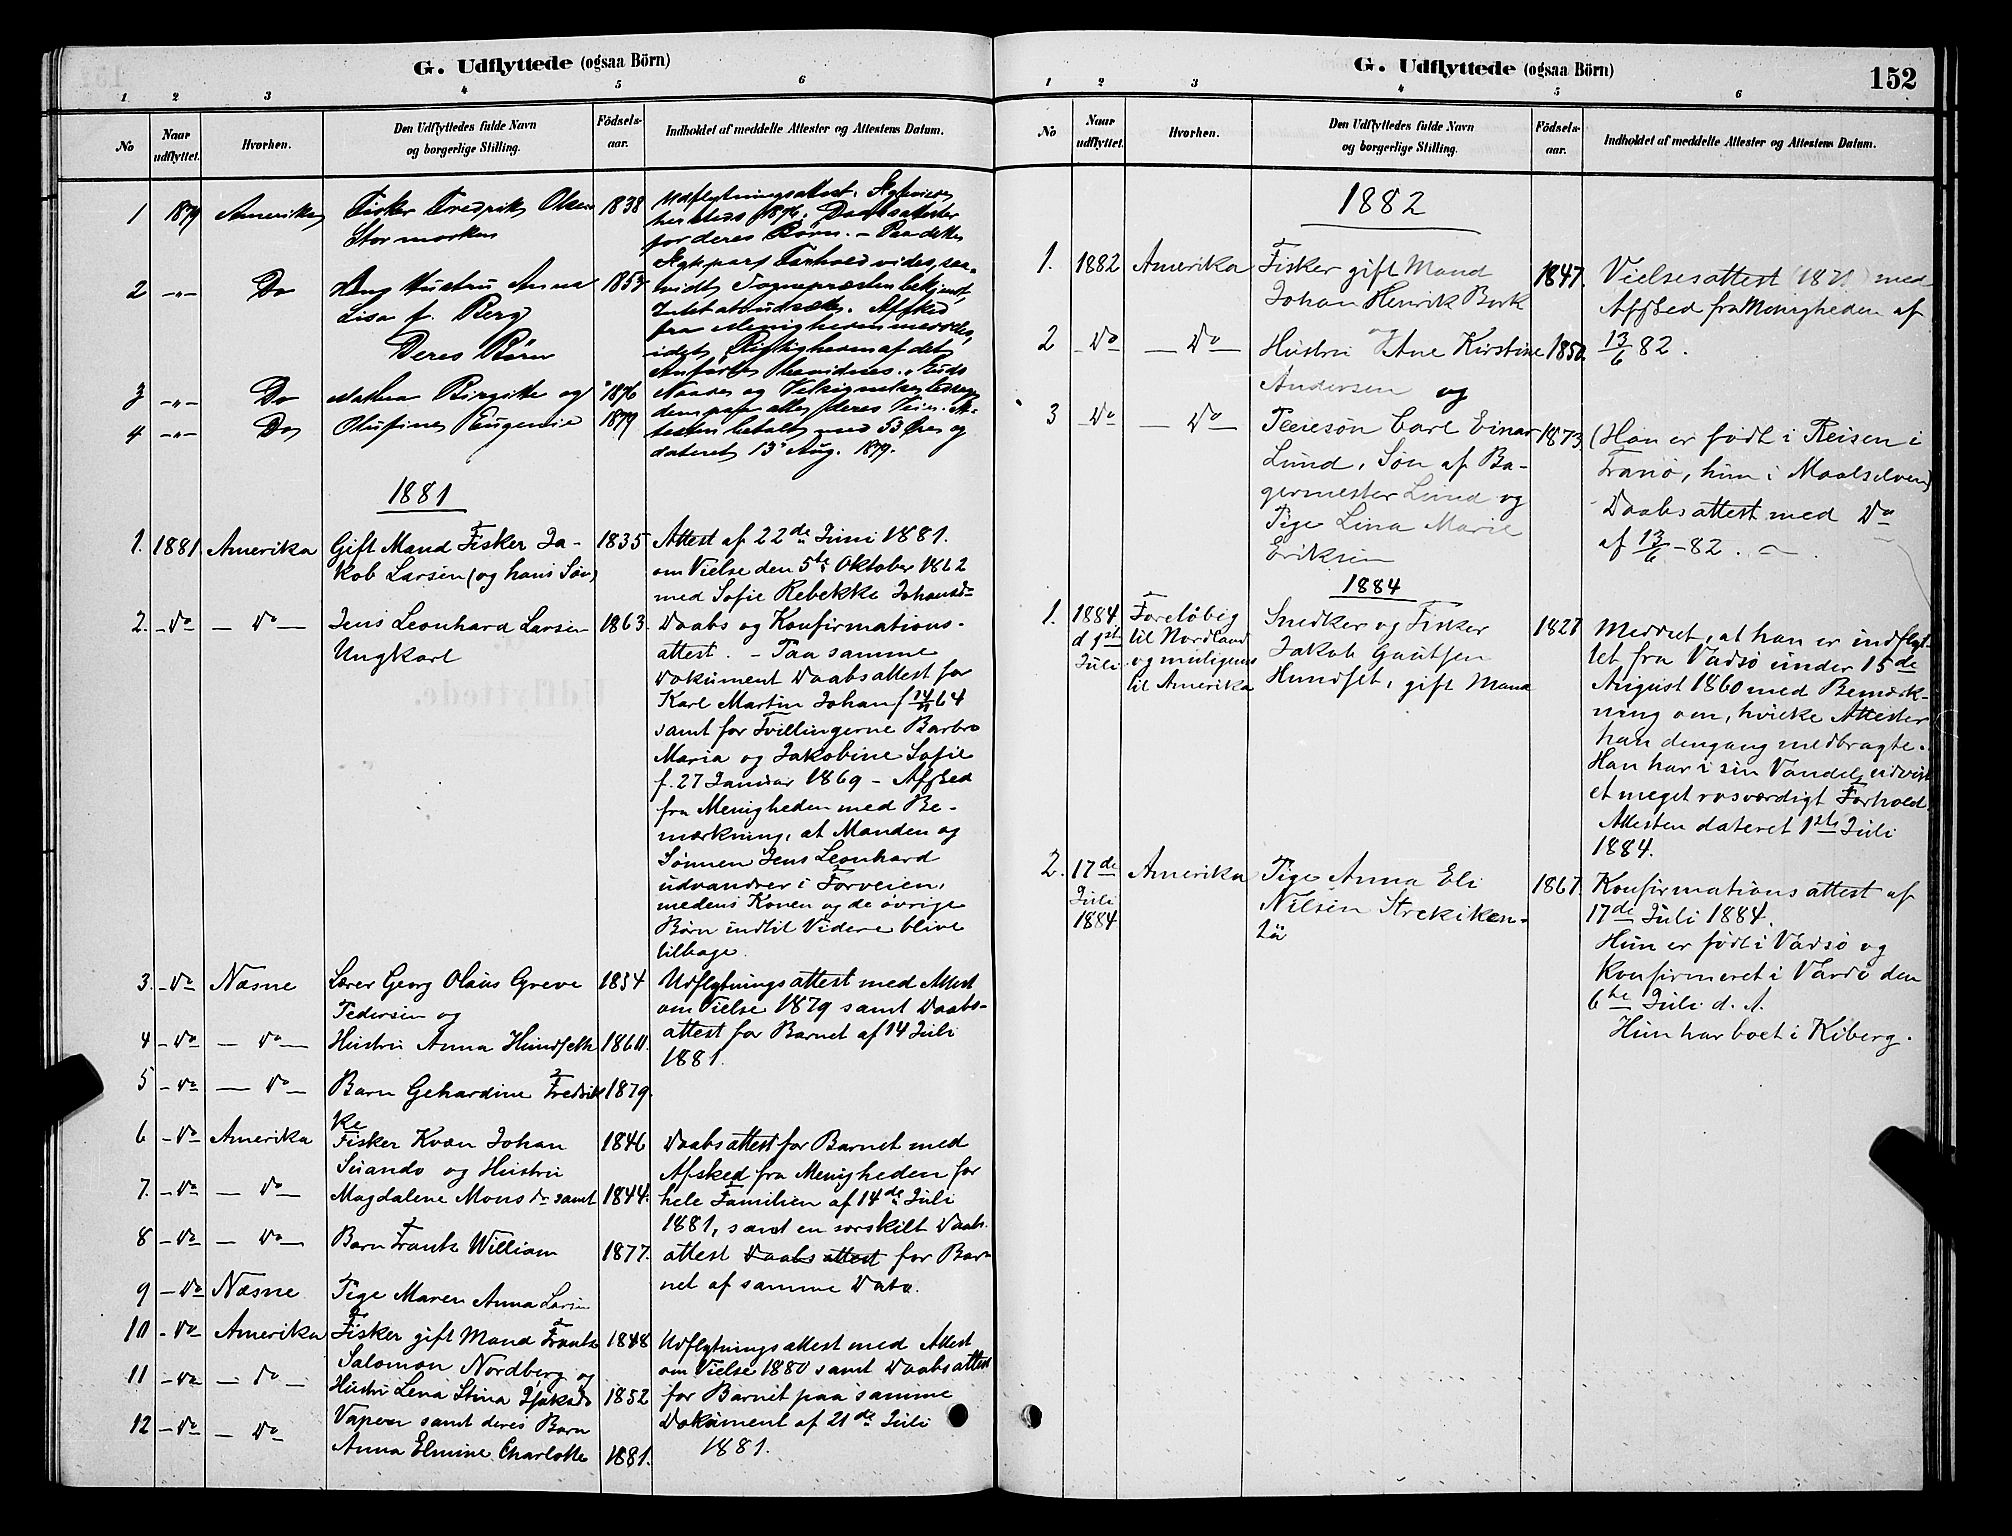 G. Udflyttede (ogsaa Börn)
1 2 3 4 5 6
No
Naar udflyttet.
Hvorhen.
Den Udflyttedes fulde Navn og borgerlige Stilling.
Födsels-aar.
Indholdet af meddelte Attester og Attestens Datum.
1 1879 Amerika Fisker Fredrik Olsen 1838 Udflytningsattest.
for deres Börn. – Paa dette
2 –"– Do Hans Hustru Anna 1854
Lisa f. Berg
Deres Börn
3 –"– Do Birgitte og 1876
4 –"– Do Eugenie 1879
dateret 13 Aug. 1879.
1881
1. 1881. Amerika Gift Mand Fisker Ja- 1835 Attest af 22de Juni 1881.
kob Larsen (og hans Søn) om Vielse den 5te Oktober 1862
med Sofie Rebekke Johansdr
2. –Do – Do – Jens Leonhard Larsen 1863. Daabs og Konfirmations-
Ungkarl attest. – Paa samme
Dokument Daabsattest for
Karl Martin Johan f 64
samt for Tvillingerne Barbro
Maria og Jakobine Sofie
f. 27 Januar 1869 – Afsked
fra Menigheden med Be-
mærkning, at Manden og
Sønnen Jens Leonhard
udvandrer i Forveien,
medens Konen og de øvrige
Børn indtil Videre blive
tilbage.
3. –Do Næsne Lærer Georg Olaus Greve 1854 Udflytningsattest med Attest
Pedersen og om Vielse 1879 samt Daabs-
4 –Do – Do – Hustru Anna Hundseth attest for Barnet af 14 Juli
1881.
5 –Do – Do – Barn Gehardine Fredrik 1879.
ke
6 –Do Amerika Fisker Kvæn Johan 1846 Daabsattest for Barnet med
og Hustru Afsked fra Menigheden for
7. –Do – Do – Magdalene Monsdr samt 1844. hele Familien af 14de Juli
1881, samt en særskilt Daabs-
8 –Do – Do – Barn Frank William 1877. attest Daabsattest for Bar
net af samme Dato.
9 –Do Næsne Pige Maren Anna Larsen
10 –Do Amerika Fisker gift Mand Frants 1848 Udflytningsattest med Attest
Salomon Nordberg og om Vielse 1880 samt Daabsattest
11 –Do – Do – Hustru Lena Stina 1852 for Barnet paa samme
samt deres Barn Dokument af 21de Juli
12 –Do – Do Anna Elmine Charlotte 1881. 1881.
G. Udflyttede (ogsaa Börn) 152
1 2 3 4 5 6
No
Naar udflyttet.
Hvorhen.
Den Udflyttedes fulde Navn og borgerlige Stilling.
Födsels-aar.
Indholdet af meddelte Attester og Attestens Datum.
1882
1. 1882 Amerika Fisker gift Mand 1847. Vielsesattest med
Johan Henrik Bork Afsked fra Menigheden af
2 –Do – Do – Hustru Ane Kirstine 1850. 13/6 82.
Andersen og
3 –Do – Do – Pleiesøn Carl Einar 1873 (Han er født i Reisen i
Lund, Søn af Ba- Tranø, hun i Maalselven)
germester Lund og Daabsattest med Do
Pige Lina Marie af 13/6 –82.
Eriksen
1884
1. 1884 Foreløbig Snedker og Fisker 1827 Meddelt, at han er indflyt-
d 1st til Nordland Jakob Gautsen tet fra Vadsø under 15de
Juli og muligens Hundset, gift Mand August 1860 med Bemærk-
til Amerika ning om, hvilke Attester
han dengang medbragte.
Han har i sin Vandel udvist
et meget rosværdigt Forhold.
Attesten dateret 1ste Juli
1884.
2. 17de Amerika Pige Anna Eli 1867. Konfirmationsattest af
Juli Nilsen 17de Juli 1884.
1884 Hun er født i Vadsø og
konfirmeret i Vardø den
6te Juli d. A.
Hun har boet i Kiberg.